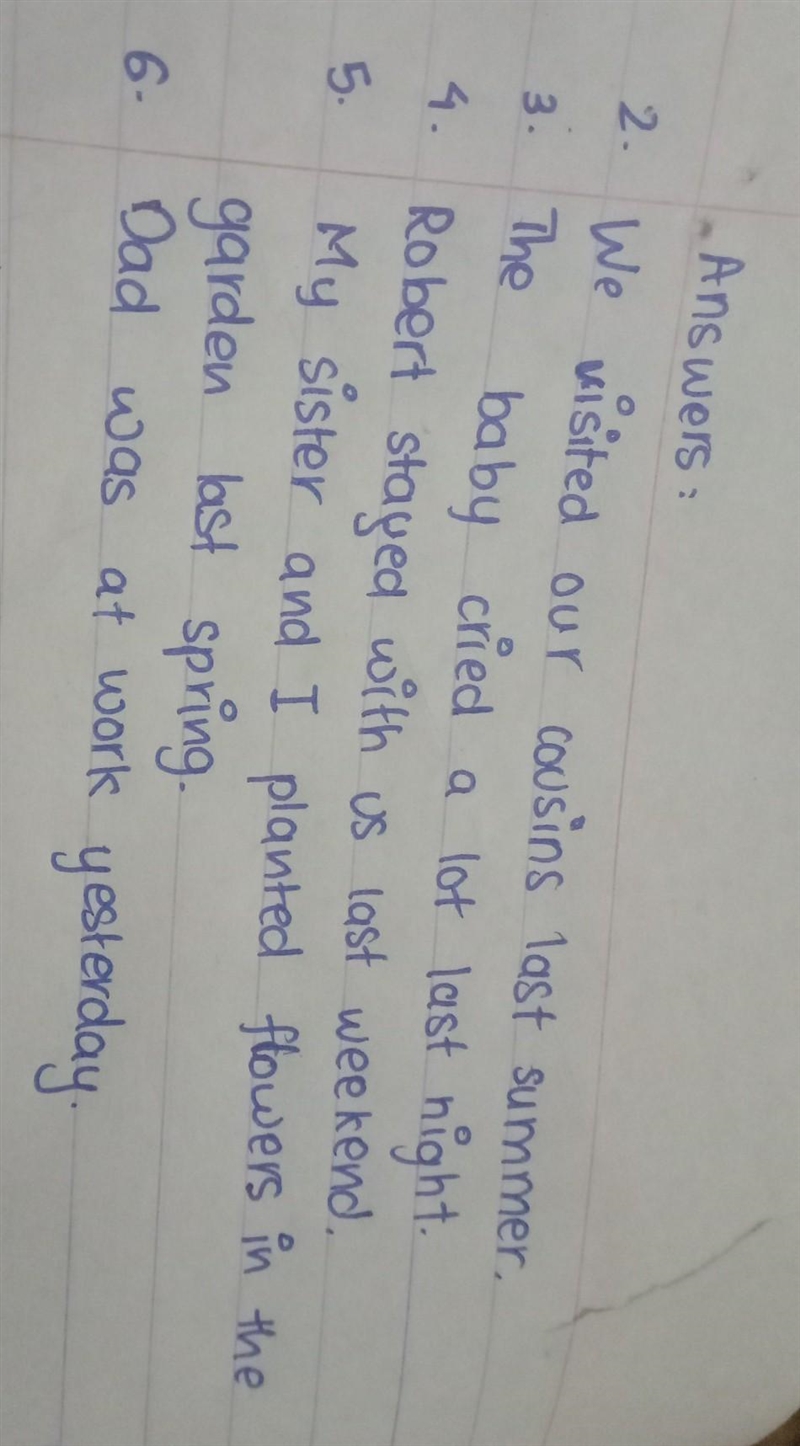 Answers:
2. We visited our cousins last summer.
3. The baby cried a lot last night.
4. Robert stayed with us last weekend.
5. My sister and I planted flowers in the
garden last spring.
6. Dad was at work yesterday.